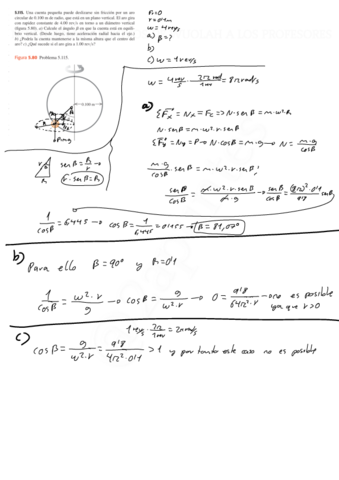 5.118. Una cuenta pequeña puede deslizarse sin fricción por un aro
circular de 0.100 m de radio, que está en un plano vertical. El aro gira
con rapidez constante de 4.00 rev/s en torno a un diámetro vertical
(figura 5.80). a) Calcule el ángulo β en que la cuenta está en equilibrio
vertical. (Desde luego, tiene aceleración radial hacia el eje.)
b) ¿Podría la cuenta mantenerse a la misma altura que el centro del
aro? c) ¿Qué sucede si el aro gira a 1.00 rev/s?
Figura 5.80 Problema 5.118.
r=0.1m
w=4rev/s
a) β=?
b)
c) w=1rev/s
w = 4 rev/s · 2π rad/1 rev = 8π rad/s
a)
N·senβ = m·w²·r·senβ
senβ = R/r
r·senβ = R
1/cosβ = 6'445 → cosβ = 1/6'445 = 0'155 → β = 81,07º
b)
Para ello β=90º y R=0'1
1/cosβ = w²·r/g → cosβ = g/w²·r → 0 = 9'8/64π²·r → no es posible
ya que r>0
c)
1 rev/s · 2π/1rev = 2π rad/s
cosβ = g/w²·r = 9'8/4π²·0'1 > 1 y por tanto este caso no es posible